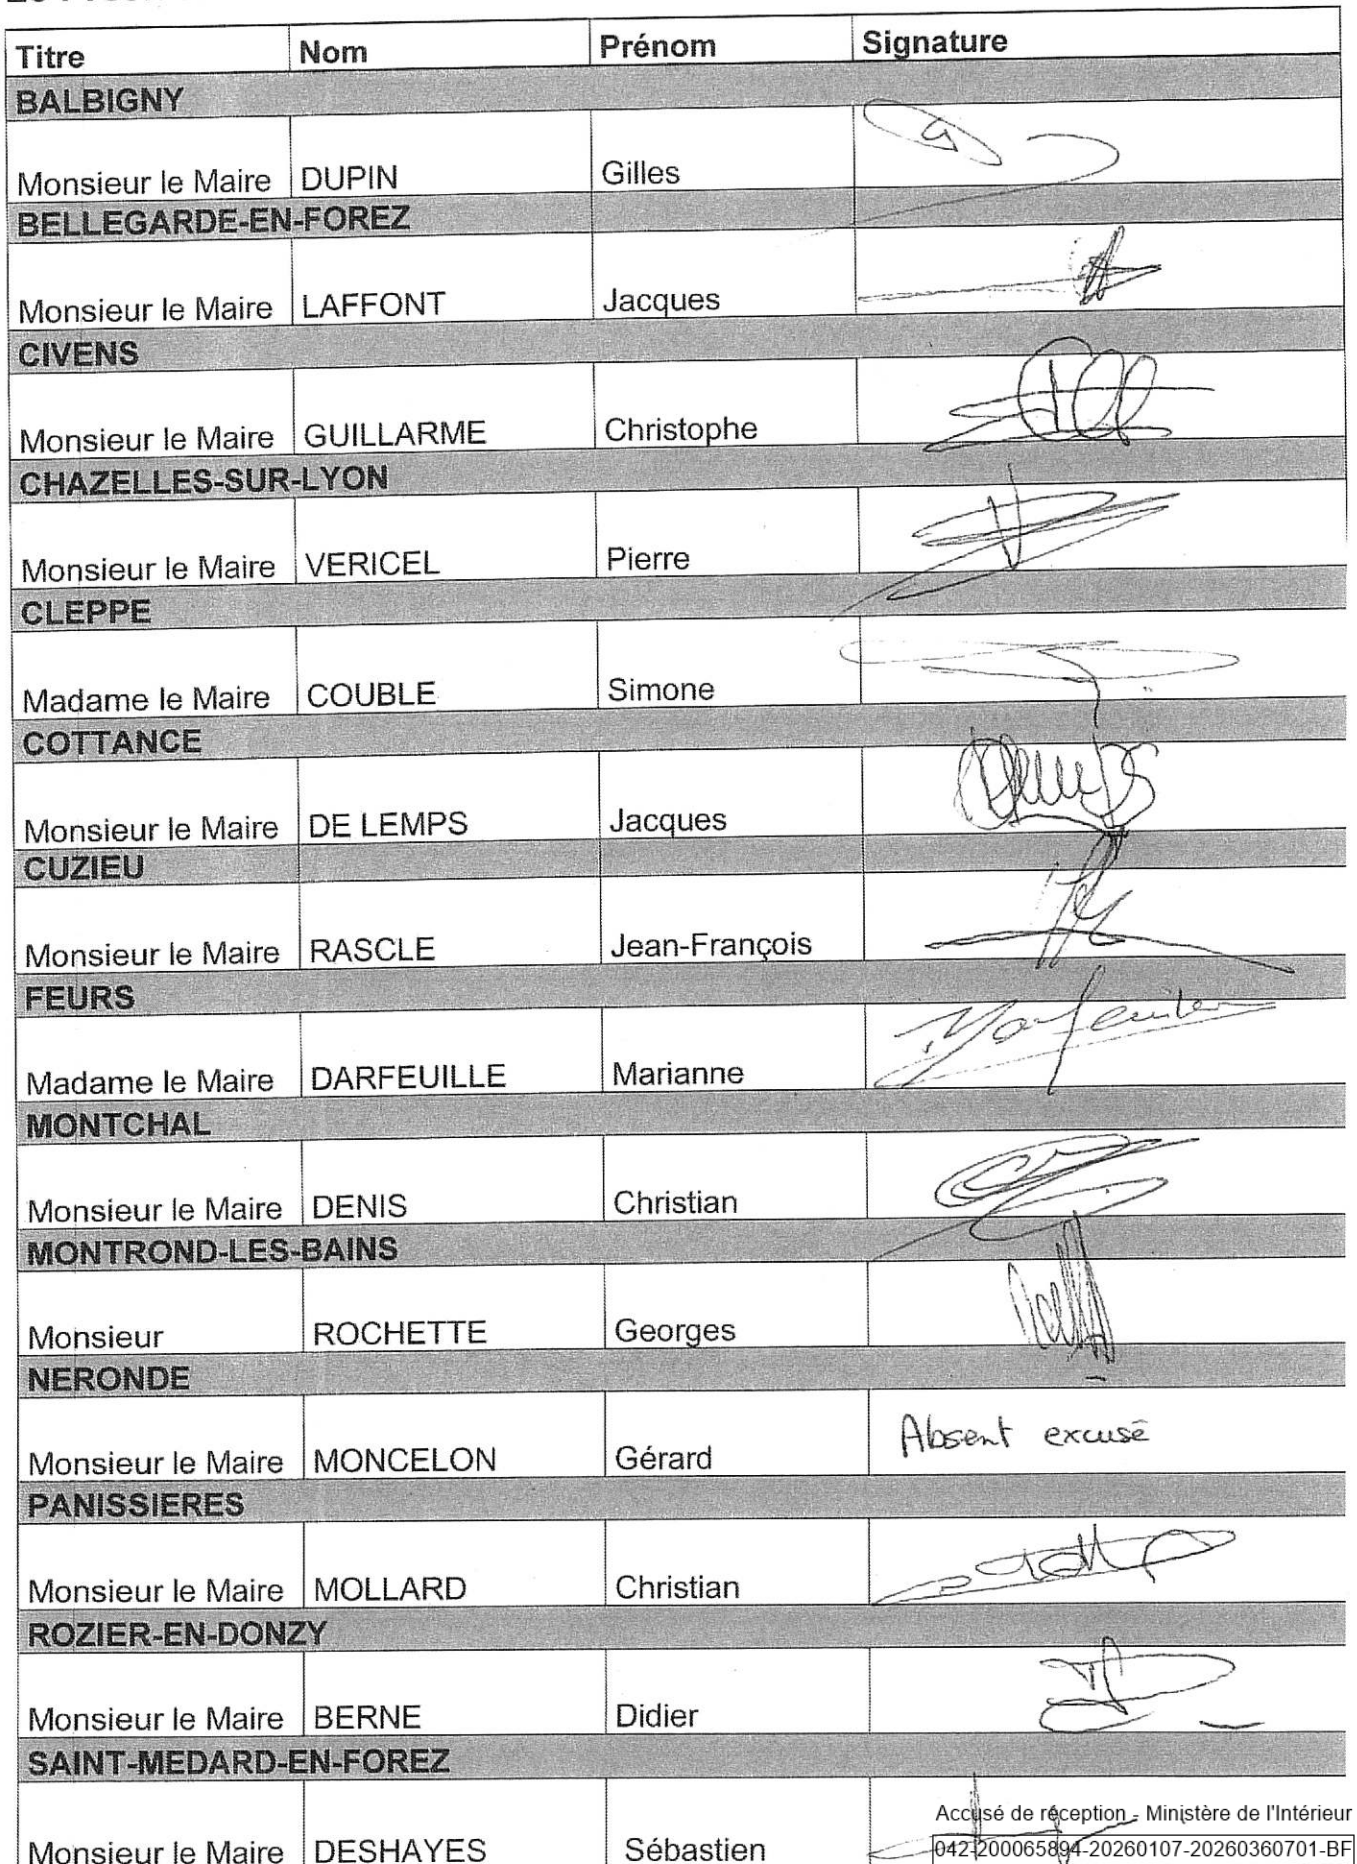 Titre Nom Prénom Signature
BALBIGNY
Monsieur le Maire DUPIN Gilles
BELLEGARDE-EN-FOREZ
Monsieur le Maire LAFFONT Jacques
CIVENS
Monsieur le Maire GUILLARME Christophe
CHAZELLES-SUR-LYON
Monsieur le Maire VERICEL Pierre
CLEPPE
Madame le Maire COUBLE Simone
COTTANCE
Monsieur le Maire DE LEMPS Jacques
CUZIEU
Monsieur le Maire RASCLE Jean-François
FEURS
Madame le Maire DARFEUILLE Marianne
MONTCHAL
Monsieur le Maire DENIS Christian
MONTROND-LES-BAINS
Monsieur ROCHETTE Georges
NERONDE
Monsieur le Maire MONCELON Gérard Absent excusé
PANISSIERES
Monsieur le Maire MOLLARD Christian
ROZIER-EN-DONZY
Monsieur le Maire BERNE Didier
SAINT-MEDARD-EN-FOREZ
Monsieur le Maire DESHAYES Sébastien
Accusé de réception - Ministère de l'Intérieur
042-200065894-20260107-20260360701-BF